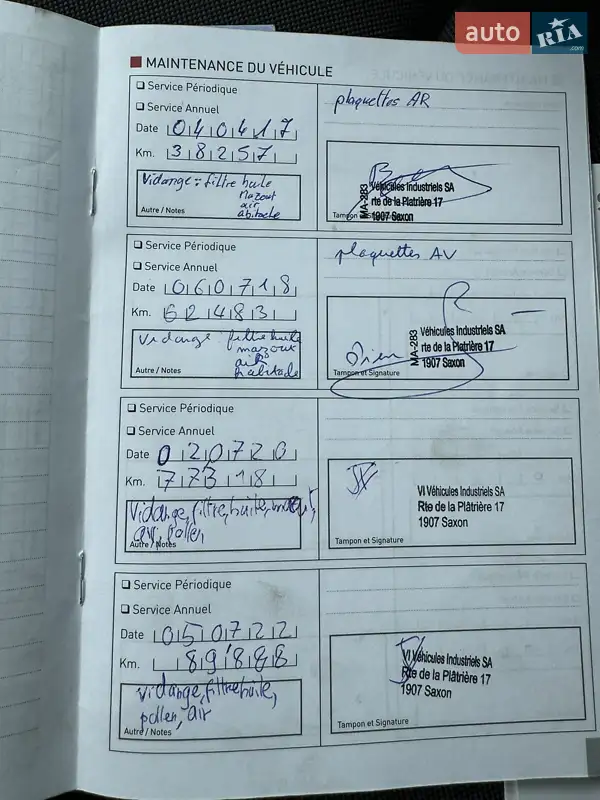 auto RIA .com
MAINTENANCE DU VÉHICULE
Service Périodique
Service Annuel
Date 040417
Km. 38257
Vidange : filtre huile
Mazout
air
abitacle
Autre / Notes
plaquettes AR
MA-283
Véhicules Industriels SA
rte de la Platrière 17
1907 Saxon
Service Périodique
Service Annuel
Date 060718
Km. 62483
Vidange filtre huile
mazout
air
habitacle
Autre / Notes
plaquettes AV
MA-283
Véhicules Industriels SA
rte de la Platrière 17
1907 Saxon
Tampon et Signature
Service Périodique
Service Annuel
Date 020720
Km. 77318
Vidange, filtre, huile,
air, pollen,
Autre / Notes
VI Véhicules Industriels SA
Rte de la Plâtrière 17
1907 Saxon
Tampon et Signature
Service Périodique
Service Annuel
Date 050722
Km. 89'888
Vidange, filtre huile,
pollen, air
Autre / Notes
VI Véhicules Industriels SA
Rte de la Plâtrière 17
1907 Saxon
Tampon et Signature